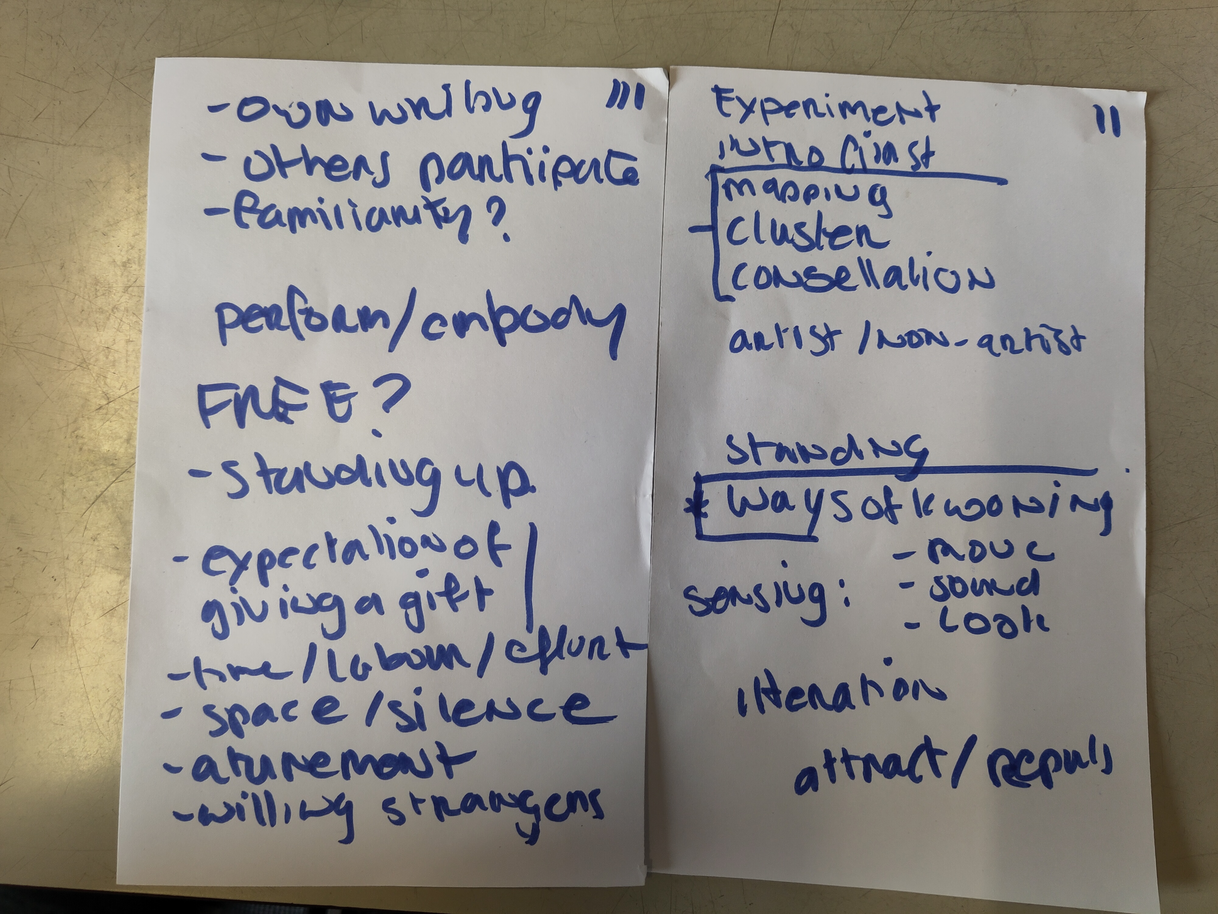 III
- own writing
- others partiipate
- familiarity?
perform/embody
FREE?
- standing up
- expectation of
giving a gift
- time/labour/effort
- space/silence
- atunement
- willing strangers
II
Experiment
intro first
mapping
cluster
consellation
artist/non-artist
standing
* ways of kwoning
- move
sensing: - sound
- look
itteration
attract/repuls